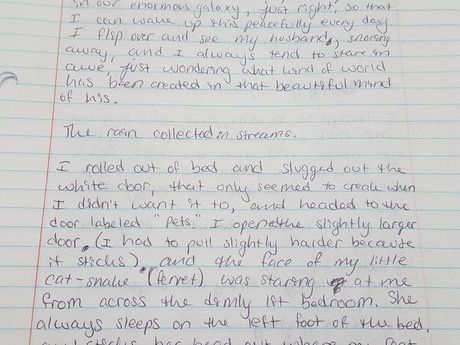 in our enormous galaxy, just right, so that
I can wake up this peacefully every day.
I flip over and see my husband, snoring
away, and I always tend to stare in
awe, just wondering what kind of world
has been created in that beautiful mind
of his.
The rain collected in streams.
I rolled out of bed and slugged out the
white door, that only seemed to creak when
I didn't want it to, and headed to the
door labeled "pets." I opened the slightly larger
door, (I had to pull slightly harder because
it sticks), and the face of my little
cat-snake (ferret) was staring at me
from across the dimly lit bedroom. She
always sleeps on the left foot of the bed,
her head out when my feet